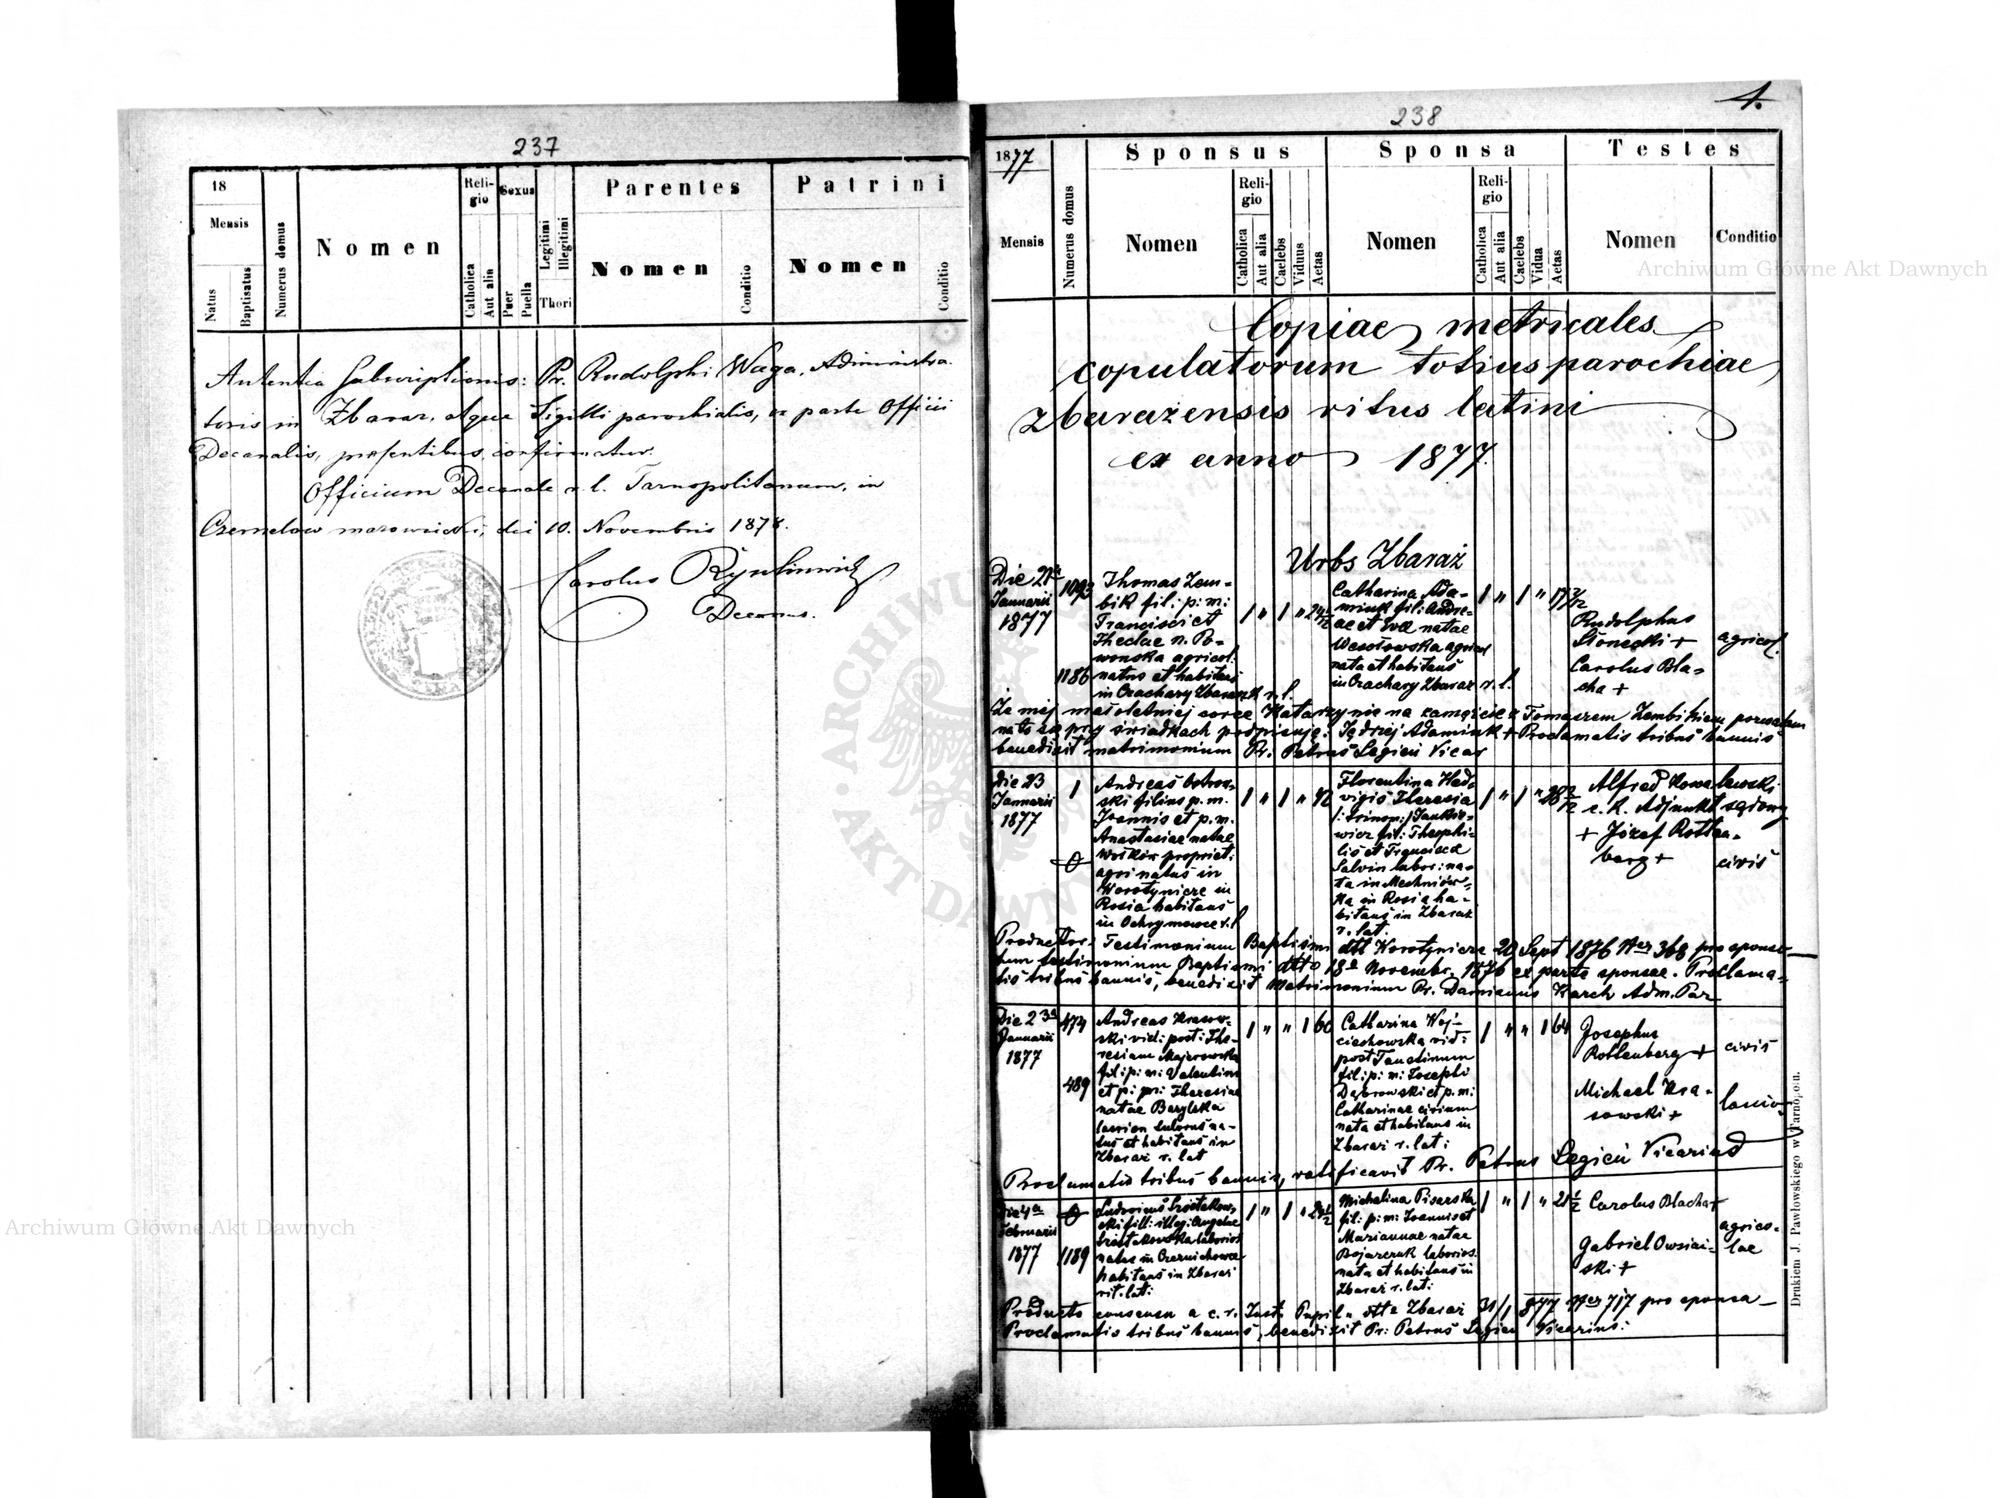 237
18
Mensis
Natus
Baptisatus
Numerus domus
Nomen
Religio
Catholica
Aut alia
Sexus
Puer
Puella
Legitimi
Illegitimi
Thori
Parentes
Nomen
Conditio
Patrini
Nomen
Conditio
Autentia subscriptionis: Pr. Rudolphi Waga, Administra-
toris in Zbaraz, atque Sigilli parochialis, ex parte Officii
Decanalis, praesentibus confirmatur.
Officium Decanale r. l. Tarnopolitanum, in
10. Novembris 1878.
Carolus
Decanus.
238
1877
Mensis
Numerus domus
Sponsus
Nomen
Religio
Catholica
Aut alia
Caelebs
Viduus
Aetas
Sponsa
Nomen
Religio
Catholica
Aut alia
Caelebs
Vidua
Aetas
Testes
Nomen
Conditio
Copiae metricales
copulatorum totius parochiae
zbarażensis ritus latini
ex anno 1877.
Urbs Zbaraż
Januarii
1877
1186
Thomas Zem-
bik fil: p: m:
Francisci et
Theclae n. Po-
wonska agricol:
natus et habitans
in Czachary Zbaraz r. l.
1 " 1 "
Catharina Ada-
miuk fil: Andre-
ae et Evae natae
Wesołowska agricol
nata et habitans
in Czachary Zbaraz r. l.
1 " 1 "
Rudolphus
Słonecki +
Carolus Bla-
cha +
agricol.
Ze mej małoletniej corce Katarzynie na zamęście z Tomaszem Zembikiem pozwalam
na to się przy świadkach podpisuję: Jędrzej Adamiuk + Proclamatis tribus bannis
benedixit matrimonium Pr. Petrus Legień Vicar
Die 23
Januarii
1877
1
Andreas Ostrow-
ski filius p. m.
Joannis et p. m.
Anastasiae natae
propriet:
agri natus in
Worotyniece in
Rosia habitans
in Ochrymowce r. l
1 " 1 " 42
Florentina Hed-
vigis Theresia
/: trinom:/ Jankie-
wicz fil: Theophi-
lis et Franciscae
Salvin labor: na-
ta in Mechniów-
ka in Rosia ha-
bitans in Zbaraż
r. lat.
1 " 1 "
Alfred Kowalewski
c. k. Adjunkt sądowy
+ Józef Rotten-
berg +
civis
Testimonium Baptismi dtto Worotyniece 20 Sept 1876 Ner 368 pro sponso
testimonium Baptismi dtto 18a Novembr. 1876 ex parte sponsae. Proclama-
tis tribus bannis, benedixit Matrimonium Pr. Damianus Karch Adm. Par
Die 23a
Januarii
1877
474
489
Andreas Krasow-
ski vid: post: The-
resiam Majerowska
fil: p: m: Valentini
et p: m: Theresiae
natae Barylska
na-
tus et habitans in
Zbaraż r. lat
1 " " 1 60
Catharina Woj-
ciechowska vid:
post
fil: p: m: Josephi
Dąbrowski et p. m:
Catharinae civium
nata et habitans in
Zbaraż r. lat:
1 " " 1 64
Josephus
Rottenberg +
civis
Michael Kra-
sowski +
Proclamatis tribus bannis, ratificavit Pr. Petrus Legień Vicarius
Die 4a
Februarii
1877
1189
Ludovicus Szostakow-
ski fil: illeg: Angelae
Szostakowska laborios
natus in Czernichowce
habitans in Zbaraż
rit. lat:
1 " 1 "
Michalina Pisarska
fil: p: m: Joannis et
Mariannae natae
Bojarczuk laborios.
nata et habitans in
Zbaraż r. lat:
1 " 1 " 21½
Carolus Blacha +
Gabriel Owsiai-
ski +
agrico-
lae
Producto consensu a c. r. Inst. Pupil. dtto Zbaraż 31/1 877 Ner 717 pro sponsa -
Proclamatis tribus bannis, benedixit Pr: Petrus Legień Vicarius:
Drukiem J. Pawłowskiego w Tarnopolu.
ARCHIWUM
AKT DAWNYCH
Archiwum Główne Akt Dawnych
Archiwum Główne Akt Dawnych